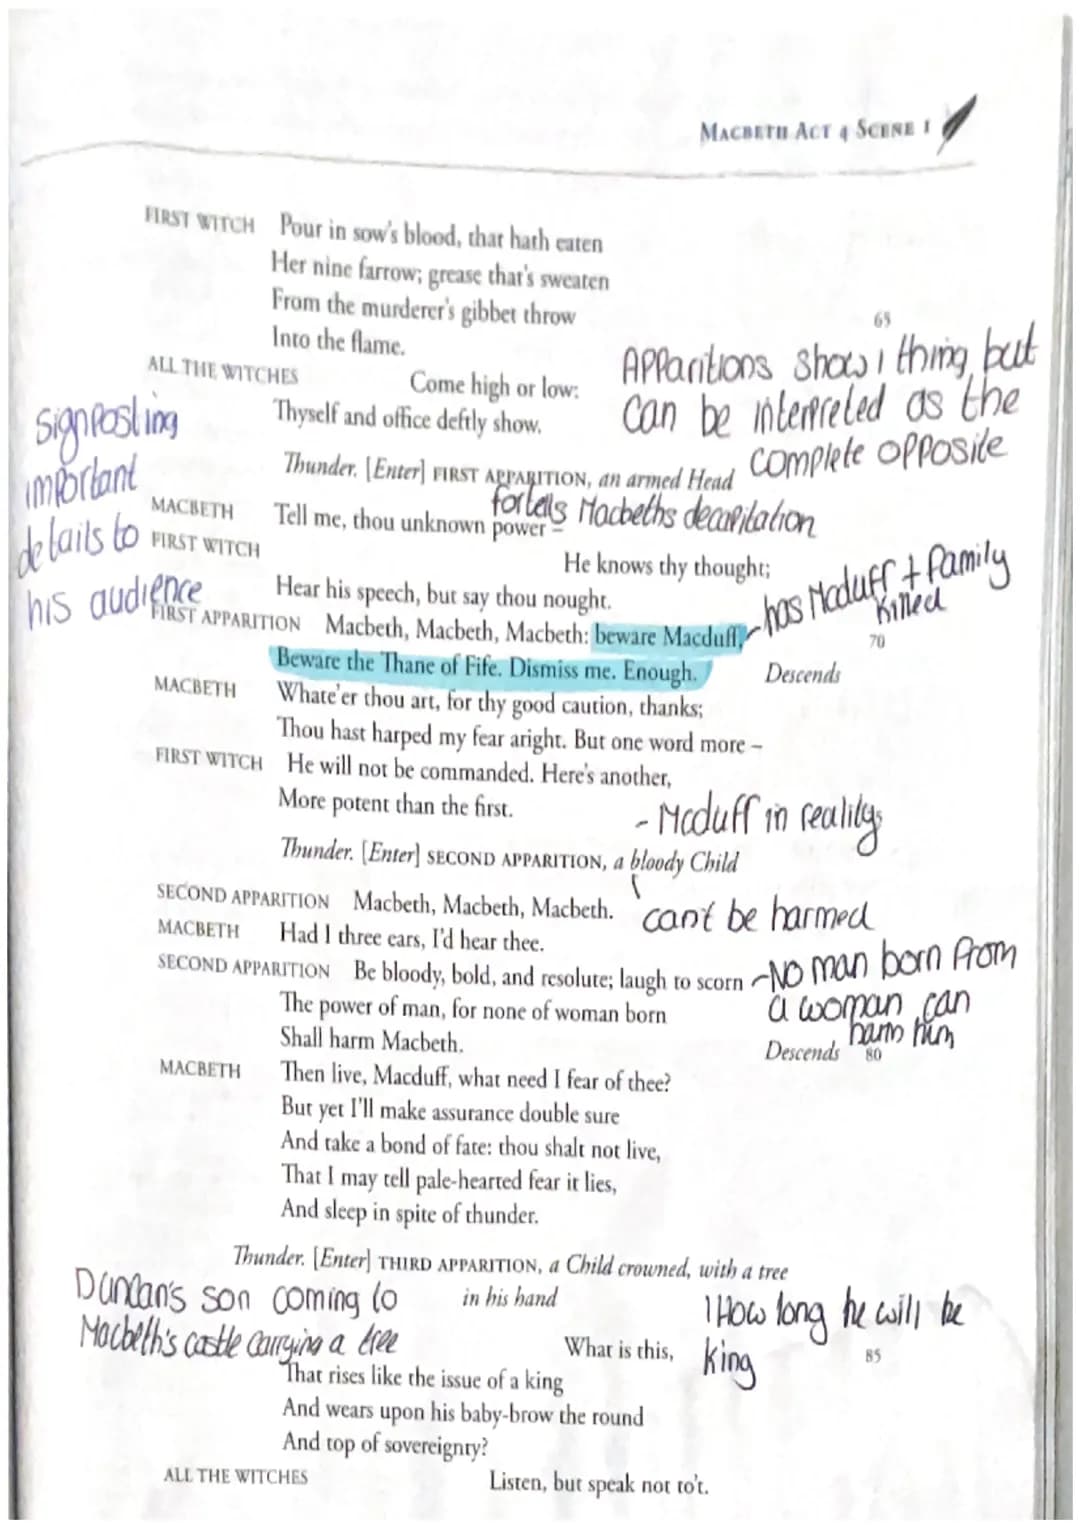 MACBETH ACT 4 SCENE 1
FIRST WITCH Pour in sow's blood, that hath eaten
Her nine farrow; grease that's sweaten
From the murderer's gibbet throw
65
Into the flame.
Apparitions show 1 thing, but
can be interpreted as the
complete opposite
ALL THE WITCHES Come high or low:
Thyself and office deftly show.
signposting
important
details to
his audience
Thunder. [Enter] FIRST APPARITION, an armed Head
fortells Macbeths decapitation
MACBETH Tell me, thou unknown power –
FIRST WITCH He knows thy thought;
Hear his speech, but say thou nought.
- has Mcduff + family
killed
FIRST APPARITION Macbeth, Macbeth, Macbeth: beware Macduff,
70
Beware the Thane of Fife. Dismiss me. Enough. Descends
MACBETH Whate'er thou art, for thy good caution, thanks;
Thou hast harped my fear aright. But one word more –
FIRST WITCH He will not be commanded. Here's another,
More potent than the first.
- Mcduff in reality
Thunder. [Enter] SECOND APPARITION, a bloody Child
can't be harmed
SECOND APPARITION Macbeth, Macbeth, Macbeth.
MACBETH Had I three ears, I'd hear thee.
SECOND APPARITION Be bloody, bold, and resolute; laugh to scorn
- No man born from
a woman can
harm him
The power of man, for none of woman born
Shall harm Macbeth. Descends 80
MACBETH Then live, Macduff, what need I fear of thee?
But yet I'll make assurance double sure
And take a bond of fate: thou shalt not live,
That I may tell pale-hearted fear it lies,
And sleep in spite of thunder.
Thunder. [Enter] THIRD APPARITION, a Child crowned, with a tree
in his hand
Duncan's son coming to
Macbeth's castle carrying a tree
1 How long he will be
king
What is this, 85
That rises like the issue of a king
And wears upon his baby-brow the round
And top of sovereignty?
ALL THE WITCHES Listen, but speak not to't.